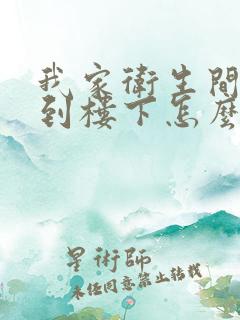 我家衛生間
到樓下怎麼
星術師
未經同意禁止轉載